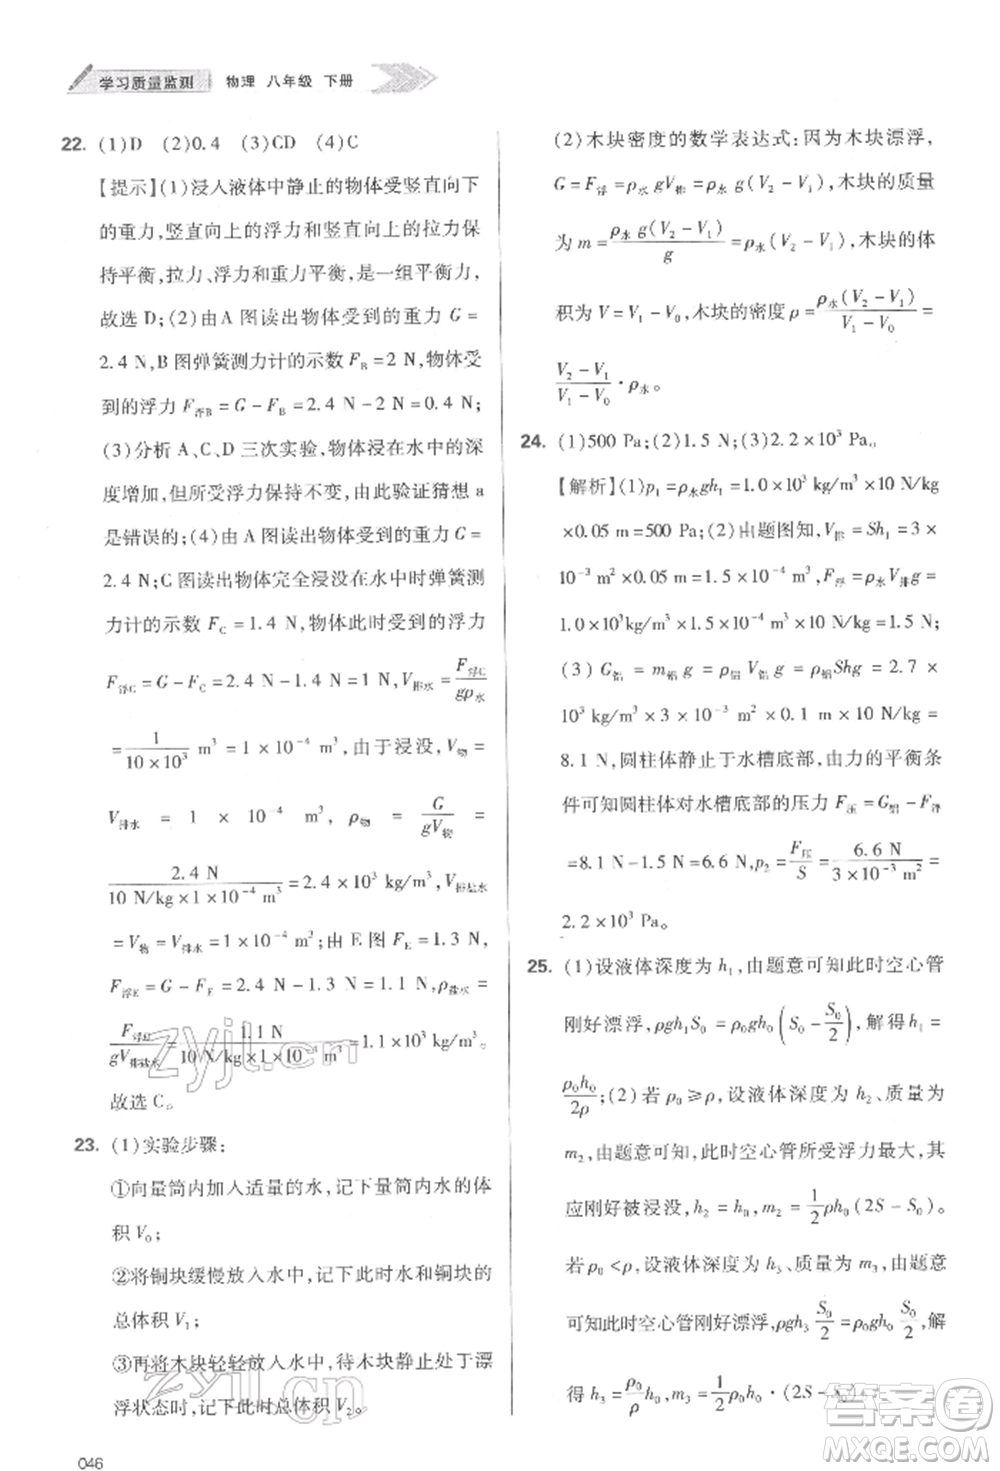 学习质量监测 物理 八年级 下册
22. (1)D (2)0.4 (3)CD (4)C
【提示】(1)浸入液体中静止的物体受竖直向下
的重力,竖直向上的浮力和竖直向上的拉力保
持平衡,拉力、浮力和重力平衡,是一组平衡力,
故选 D;(2)由 A 图读出物体受到的重力 G=
2.4 N,B 图弹簧测力计的示数 F_B=2 N,物体受
到的浮力 F_浮B=G-F_B=2.4 N-2 N=0.4 N;
(3)分析 A、C、D 三次实验,物体浸在水中的深
度增加,但所受浮力保持不变,由此验证猜想 a
是错误的;(4)由 A 图读出物体受到的重力 G=
2.4 N;C 图读出物体完全浸没在水中时弹簧测
力计的示数 F_C=1.4 N,物体此时受到的浮力
F_浮C=G-F_C=2.4 N-1.4 N=1 N,V_排水=F_浮C/gρ_水
=1/(10×10³) m³=1×10⁻⁴ m³,由于浸没,V_物=
V_排水 = 1 × 10⁻⁴ m³, ρ_物 = G/gV_物 =
2.4 N/(10 N/kg×1×10⁻⁴ m³)=2.4×10³ kg/m³,V_排盐水
=V_物=V_排水=1×10⁻⁴ m³;由 E 图 F_E=1.3 N,
F_浮E=G-F_E=2.4 N-1.3 N=1.1 N,ρ_盐水=
F_浮E/gV_排盐水=1.1 N/(10 N/kg×1×10⁻⁴ m³)=1.1×10³ kg/m³。
故选 C。
23. (1)实验步骤:
①向量筒内加入适量的水,记下量筒内水的体
积 V₀;
②将铜块缓慢放入水中,记下此时水和铜块的
总体积 V₁;
③再将木块轻轻放入水中,待木块静止处于漂
浮状态时,记下此时总体积 V₂。
046
(2)木块密度的数学表达式:因为木块漂浮,
G=F_浮=ρ_水gV_排=ρ_水g(V₂-V₁),木块的质量
为 m=ρ_水g(V₂-V₁)/g=ρ_水(V₂-V₁),木块的体
积为 V=V₁-V₀,木块的密度 ρ=ρ_水(V₂-V₁)/(V₁-V₀)=
(V₂-V₁)/(V₁-V₀)·ρ_水。
24. (1)500 Pa;(2)1.5 N;(3)2.2×10³ Pa。
【解析】(1)p₁=ρ_水gh₁=1.0×10³ kg/m³×10 N/kg
×0.05 m=500 Pa;(2)由题图知,V_排=Sh₁=3×
10⁻³ m²×0.05 m=1.5×10⁻⁴ m³,F_浮=ρ_水V_排g=
1.0×10³ kg/m³×1.5×10⁻⁴ m³×10 N/kg=1.5 N;
(3) G_铝 = m_铝 g = ρ_铝 V_铝 g = ρ_铝Shg = 2.7 ×
10³ kg/m³×3×10⁻³ m²×0.1 m×10 N/kg=
8.1 N,圆柱体静止于水槽底部,由力的平衡条
件可知圆柱体对水槽底部的压力 F_压=G_铝-F_浮
=8.1 N-1.5 N=6.6 N,p₂=F_压/S=6.6 N/(3×10⁻³ m²)=
2.2×10³ Pa。
25. (1)设液体深度为 h₁,由题意可知此时空心管
刚好漂浮,ρgh₁S₀=ρ₀gh₀(S₀-S₀/2),解得 h₁=
ρ₀h₀/2ρ;(2)若 ρ₀≥ρ,设液体深度为 h₂,质量为
m₂,由题意可知,此时空心管所受浮力最大,其
应刚好被浸没,h₂=h₀,m₂=1/2ρh₀(2S-S₀)。
若 ρ₀<ρ,设液体深度为 h₃、质量为 m₃,由题意
可知此时空心管刚好漂浮,ρgh₃S₀/2=ρ₀gh₀S₀/2,解
得 h₃=ρ₀/ρh₀,m₃=1/2ρ₀h₀·(2S-S₀)。
zyjl.cn
zyjl.cn
答案圈
MXQE.COM